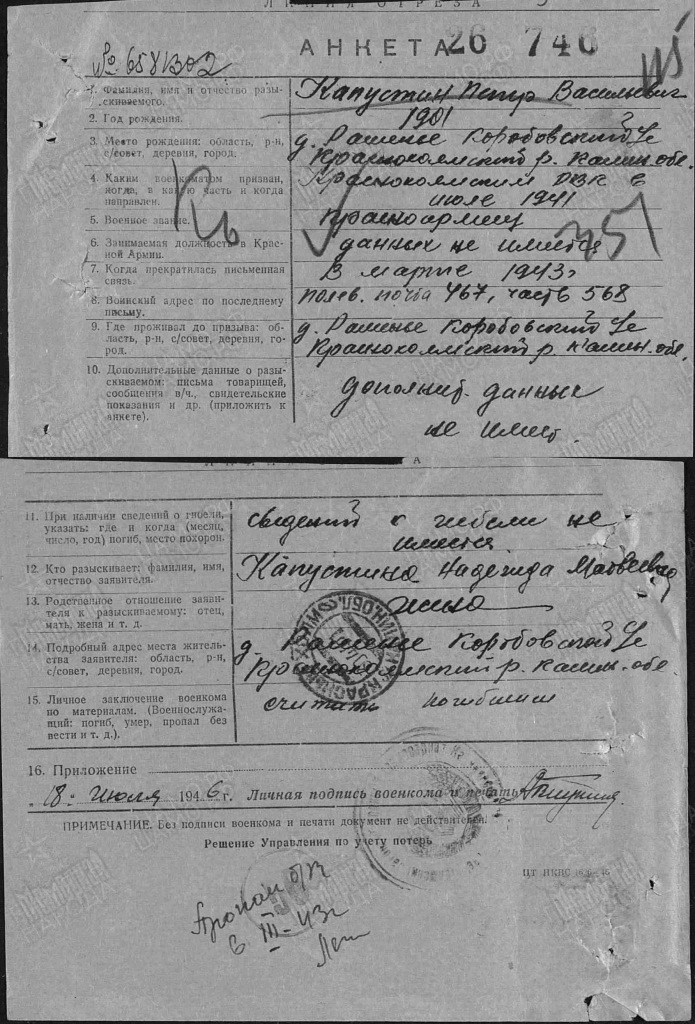 ЛИНИЯ ОТРЕЗА
№ 6581302
АНКЕТА 26 746
1. Фамилия, имя и отчество разыскиваемого.
Капустин Петр Васильевич
2. Год рождения.
1901
3. Место рождения: область, р-н, с/совет, деревня, город.
д. Рашенье Коробовский
Краснохолмский р. Калин. обл.
4. Каким военкоматом призван, когда, в какую часть и когда направлен.
Краснохолмским РВК в
июле 1941
5. Военное звание.
Красноармеец
6. Занимаемая должность в Красной Армии.
данных не имеется
7. Когда прекратилась письменная связь.
в марте 1943г
8. Воинский адрес по последнему письму.
Полев. почта 467, часть 568
9. Где проживал до призыва: область, р-н, с/совет, деревня, город.
д. Рашенье Коробовский
Краснохолмский р. Калин. обл.
10. Дополнительные данные о разыскиваемом: письма товарищей, сообщения в/ч., свидетельские показания и др. (приложить к анкете).
дополнит. данных
не имеет.
11. При наличии сведений о гибели, указать: где и когда (месяц, число, год) погиб, место похорон.
сведений к гибели не
имеется
12. Кто разыскивает: фамилия, имя, отчество заявителя.
Капустина Надежда Матвеевна
13. Родственное отношение заявителя к разыскиваемому: отец, мать, жена и т. д.
жена
14. Подробный адрес места жительства заявителя: область, р-н, с/совет, деревня, город.
д. Рашенье Коробовской
Краснохолмский р. Калин. обл.
15. Личное заключение военкома по материалам. (Военнослужащий: погиб, умер, пропал без вести и т. д.).
считать погибшим
16. Приложение
18 июля 1946 г. Личная подпись военкома и печать
ПРИМЕЧАНИЕ. Без подписи военкома и печати документ не действителен.
Решение Управления по учету потерь
Пропал б/в
в III-43г